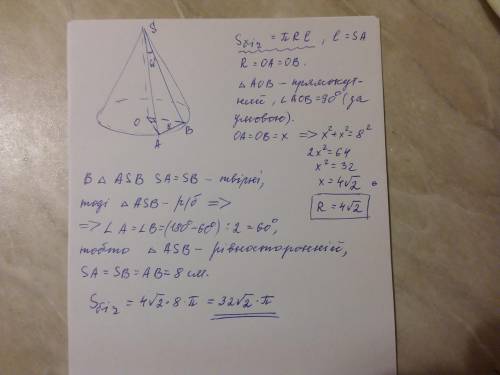 S
60°
O
x
B
A
Sбіч = πRl, l = SA
R = OA = OB.
△AOB – прямокут-
ний, ∠AOB = 90° (за
умовою).
OA = OB = x => x² + x² = 8²
2x² = 64
x² = 32
x = 4√2
R = 4√2
В △ ASB SA = SB – твірні,
тоді △ ASB – р/б =>
=> ∠A = ∠B = (180° – 60°) : 2 = 60°,
тобто △ ASB – рівносторонній,
SA = SB = AB = 8 см.
Sбіч = 4√2 · 8 · π = 32√2 · π